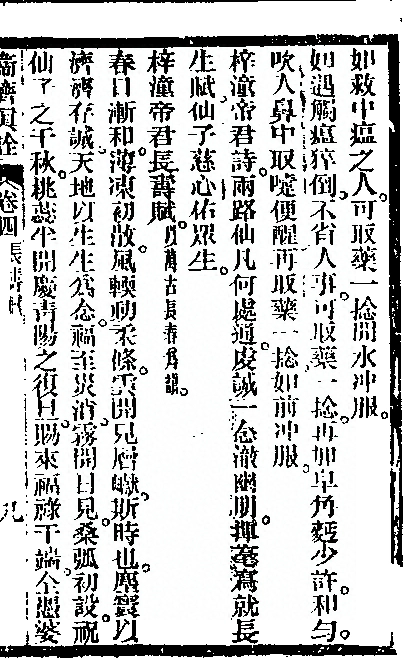 如救中瘟之人可取藥一捻開水冲服
如遇觸瘟猝倒不省人事可取藥一捻再加皂角麪少許和勻
吹入鼻中取嚏便醒再取藥一捻如前冲服
梓潼帝君詩兩路仙凡何處通虔誠一念澈幽明揮毫寫就長
生賦仙子慈心佑眾生
梓潼帝君長壽賦以萬古長春為韻
春日漸和薄凍初散風輭動柔條雲開見層巘斯時也塵寰以
濟濟存誠天地以生生為念福至災消霧開日見桑弧初設祝
仙子之千秋桃蕊半開慶青陽之復旦賜來福祿千端全憑婆
齊 卷四 長壽賦 九